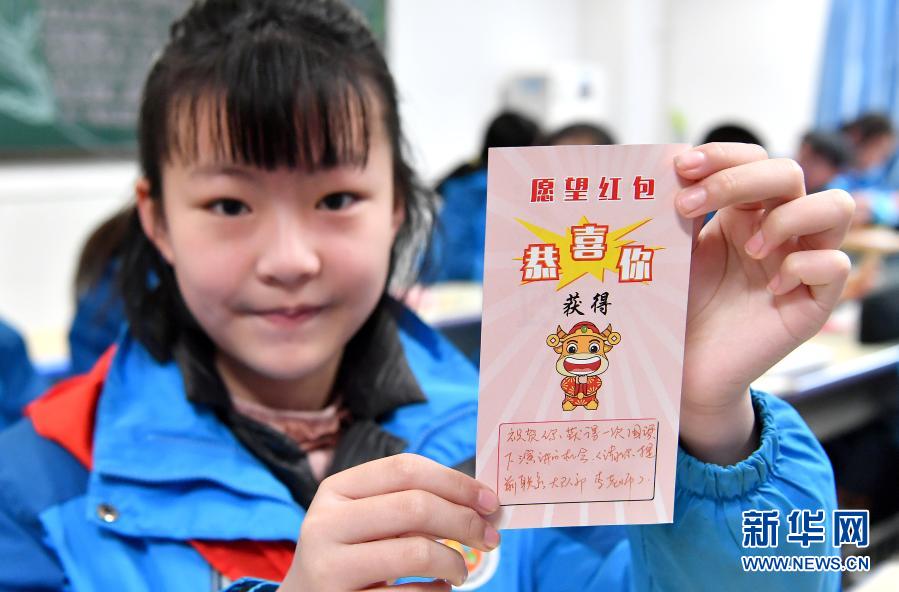 愿望红包
恭喜你
获得
祝贺你、获得一次国旗
下演讲的机会（请你提
前联系大队部 李老师）.
新华网
WWW.NEWS.CN